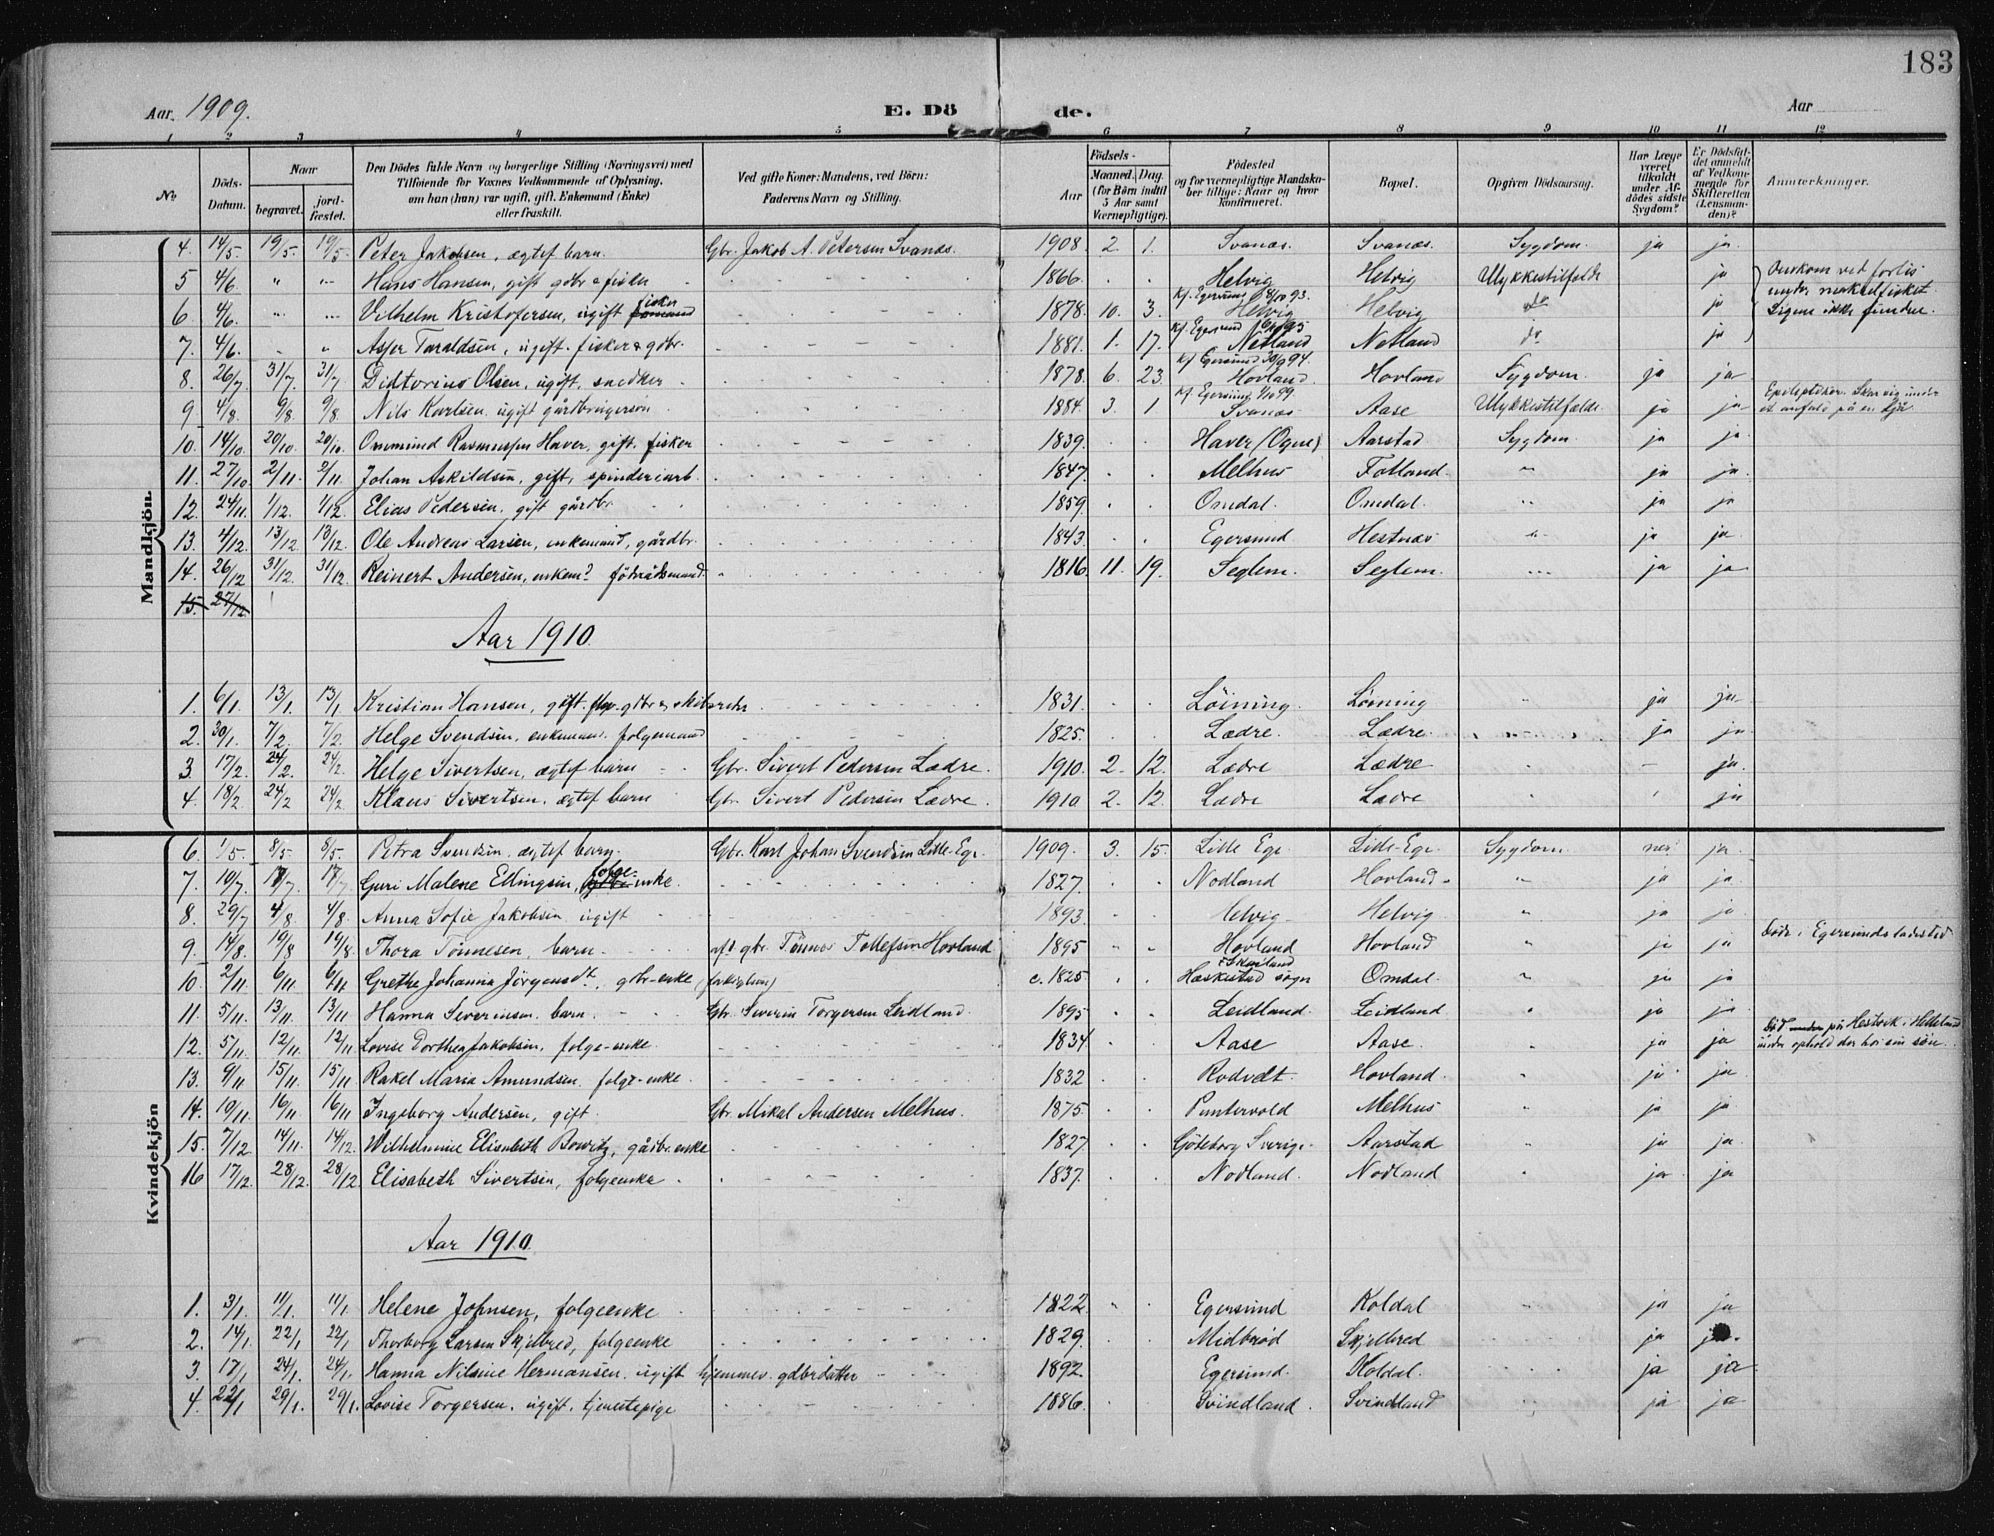 183
Aar 1909. E. Dö de. Aar
1 2 3 4 5 6 7 8 9 10 11 12
No. Döds-Datum. Naar begravet. jordfæstet. Den Dödes fulde Navn og borgerlige Stilling (Næringsvei) med Tilföiende for Voxnes Vedkommende af Oplysning, om han (hun) var ugift, gift, Enkemand (Enke) eller fraskilt. Ved gifte Koner: Mandens, ved Börn: Faderens Navn og Stilling. Födsels- Aar Maaned. Dag. (for Börn indtil 5 Aar samt Værnepligtige). Födested og for værnepligtige Mandskaber tillige: Naar og hvor konfirmeret. Bopæl. Opgiven Dödsaarsag. Har Læge været tilkaldt under Afdödes sidste Sygdom? Er Dödsfaldet anmeldt af Vedkommende for Skifteretten (Lensmanden)? Anmærkninger.
Mandkjön.
4. 14/5 19/5. 19/5. Peter Jakobsen, ægtef barn. Gbr. Jakob A. Petersen Svanæs. 1908. 2. 1. Svanæs. Svanæs. Sygdom. ja ja
5 4/6 " " Hans Hansen, gift gdbr & fisker 1866. Helvig Helvig Ulykkestilfælde ja Omkom ved forlis under makrelfisket. Ligene ikke fundne.
6. 4/6. Vilhelm Kristofersen, ugift fisker 1878. 10. 3. Kf. Egersund 93. Helvig Helvig do ja
7. 4/6. Asser Taraldsen, ugift. fisker & gdbr. 1881. 1. 17. Kf. Egersund 95 Netland Netland do. ja
8. 26/7 31/7. 31/7 Didtorius Olsen, ugift, snedker 1878. 6. 23. Kf Egersund 94. Hovland. Hovland Sygdom. ja ja
9. 4/8. 9/8. 9/8. Nils Karlsen. ugift gårdbrugersøn 1884. 3. 1 Kf. Egersund 99. Svanæs Aase Ulykkestilfælde ja ja Epileptiker. Skar sig under et anfald på en ljå.
10. 14/10 20/10. 20/10. Ommund Rasmussen Haver, gift. fisker 1839. Haver (Ogne) Aarstad Sygdom ja ja
11. 27/10 2/11. 2/11. Johan Askildsen, gift, spinderiarb. 1847. Melhus Fotland. " ja ja
12. 24/11. 1/12. 1/12. Elias Pedersen, gift gårdbr. 1859. Omdal. Omdal. ja ja
13. 4/12. 13/12. 13/12. Ole Andreas Larsen, enkemand, gårdbr. 1843 Egersund Hestnæs ja ja
14. 26/12 31/12. 31/12. Reinert Andersen, enkem? föderådsmand. 1816. 11. 19. Seglem. Seglem. ja ja
15. 27/12.
Aar 1910.
1. 6/1. 13/1. 13/1 Kristian Hansen, gift gdbr & skibsreder 1831. Löining. Löining ja ja
2. 30/1. 7/2. 7/2. Helge Svendsen, enkeman. folgemand 1825. Lædre. Lædre. ja ja
3. 17/2. 24/2. 24/2. Helge Sivertsen, ægtef barn Gbr. Sivert Pedersen Lædre. 1910. 2. 12. Lædre Lædre " - ja.
4. 18/2. 24/2 24/2. Klaus Sivertsen. ægtef barn Gbr. Sivert Pedersen Lædre. 1910 2. 12. Lædre Lædre ja
Kvindekjön
6. 1/5. 8/5. 8/5. Petra Svendsen. ægtef barn. Gbr. Karl Johan Svendsen Lille-Ege. 1909. 3. 15. Lille Ege. Lille-Ege. Sygdom. nei ja
7. 10/7. 17/7. 17/7. Guri Malene Ellingsen, folge-enke. 1827. Nodland Hovland. " ja ja
8. 29/7 4/8. 4/8. Anna Sofie Jakobsen ugift 1893. Helvig. Helvig. " ja ja
9. 14/8. 19/8 19/8. Thora Tönnesen, barn. afd. gbr. Tönnes Tollefsen Hovland 1895 " " Hovland Hovland " ja ja Döde i Egersunds ladested
10. 2/11. 6/11. 6/11 Grethe Johanna Jörgensdt., gbr-enke c. 1825 Heskestad sogn Omdal. " ja ja
11. 5/11. 13/11. 13/11 Hanna Severinsen. barn. Gbr. Severin Torgersen Leidland. 1895 Leidland. Leidland " ja ja
12. 5/11. 12/11. 12/11 Lovise Dorthea Jakobsen, folge-enke. 1834 Aase Aase. ja ja Död på Hestvik i Helleland under ophold der hos sin sön.
13. 9/11. 15/11. 15/11. Rakel Maria Amundsen. folge-enke. 1832 Rodvelt. Hovland. ja ja
14. 10/11. 16/11. 16/11 Ingeborg Andersen, gift. Gbr. Mikal Andersen Melhus. 1875. Puntervold Melhus ja ja
15. 7/12. 14/11. 14/12. Wilhelmine Elisabeth Bowitz, gårdbr.enke 1827. Göteborg Sverige Aarstad ja ja
16 17/12. 28/12. 28/12. Elisabeth Sivertsen, folgeenke. 1837. Nodland. Nodland ja ja
Aar 1910.
1. 3/1. 11/1. 11/1. Helene Johnsen, folgeenke 1822. Egersund Koldal ja ja
2. 14/1. 22/1 22/1 Thorborg Larsen Skjelbred, folgeenke 1829. Midbröd Skjelbred ja ja
3. 17/1 24/1. 24/1. Hanna Nilsine Hermansen. ugift hjemmev. gdbrdatter 1892. Egersund. Koldal. ja ja
4. 22/1 29/1. 29/1. Lovise Torgersen. ugift. tjenestepige 1886. Svindland. Svindland ja ja